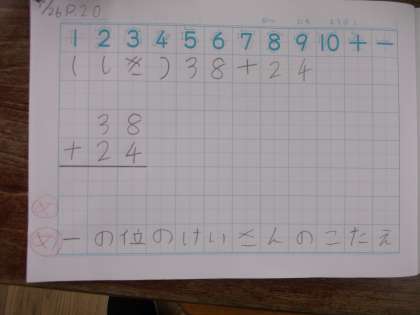 1/26 P.20
1 2 3 4 5 6 7 8 9 10 + -
(しき) 38+24
38
+24
一の位のけいさんのこたえ